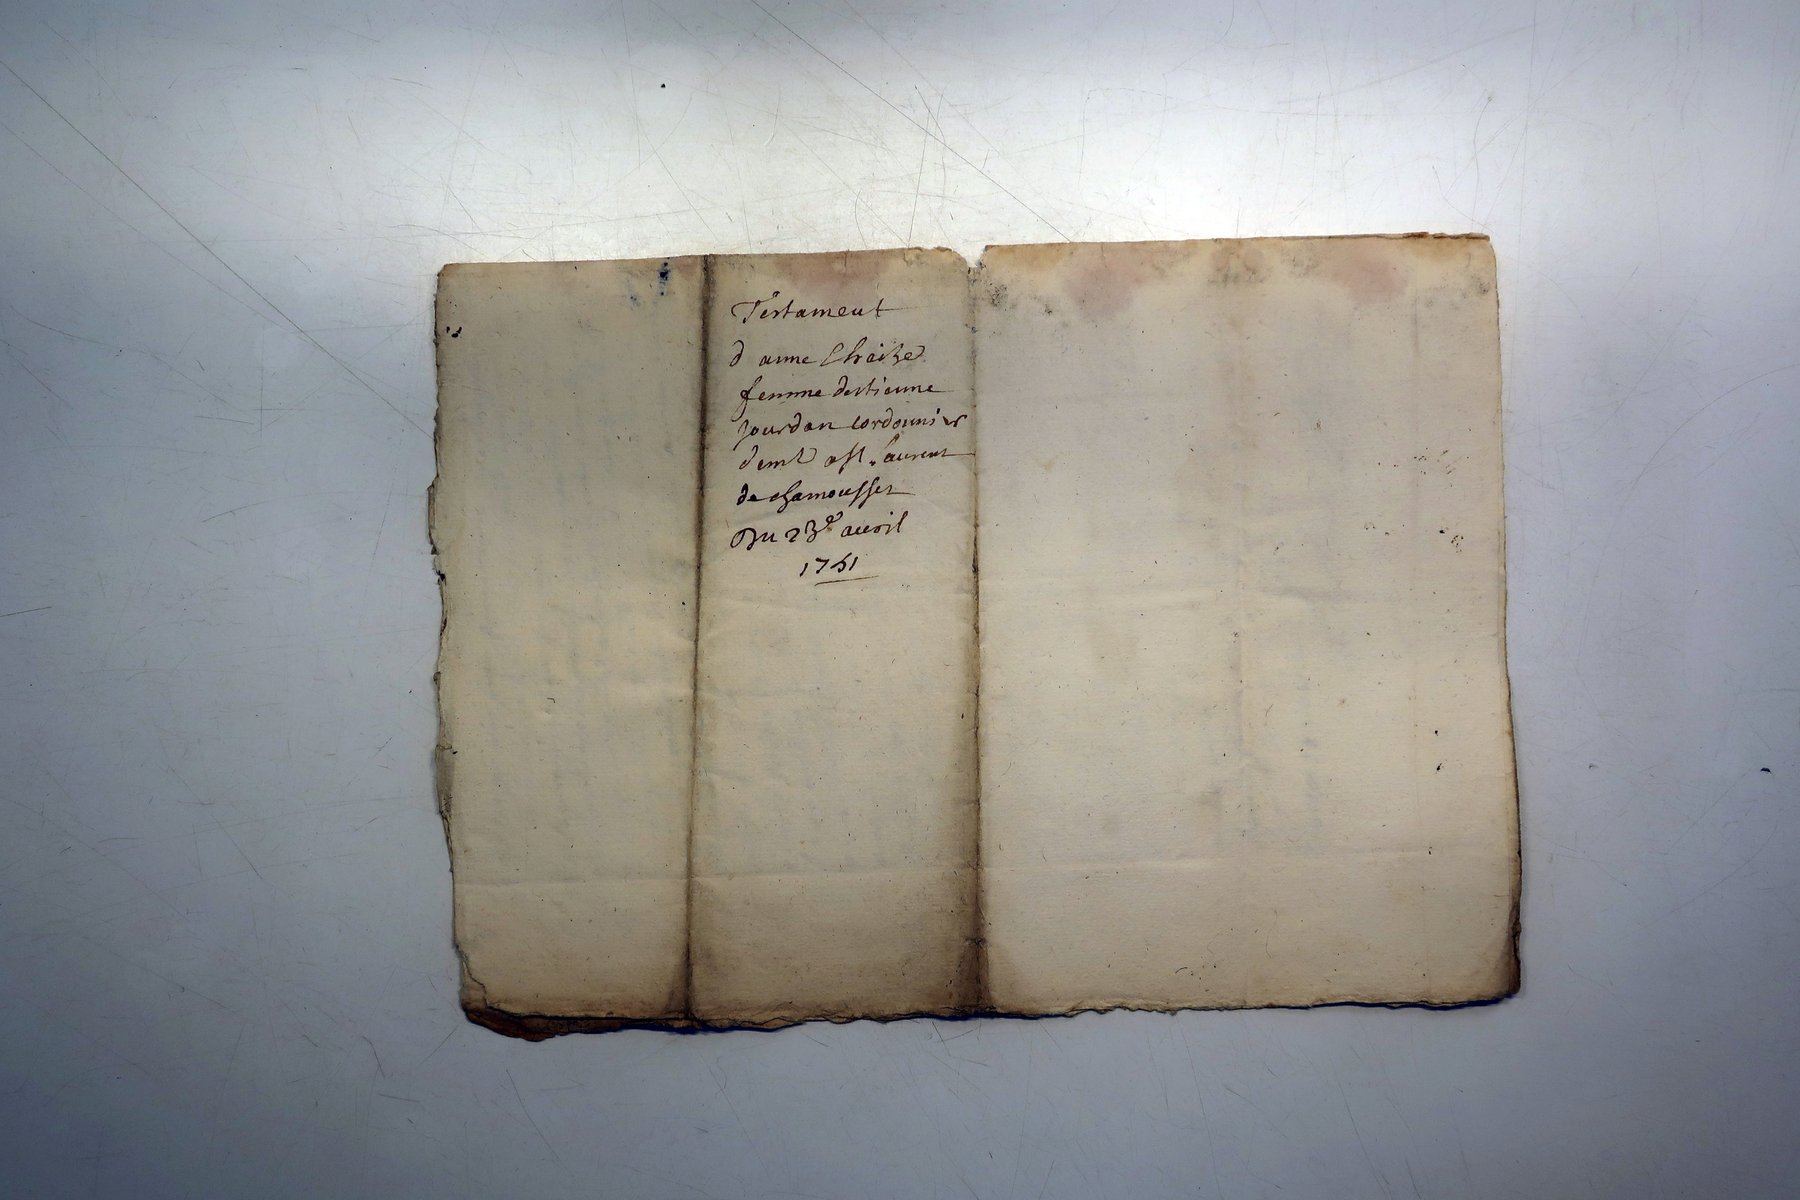 Testament
d anne Chaize
femme destienne
jourdan cordonnier
demt a st. Laurent
de chamousset
Du 23e auril
1751